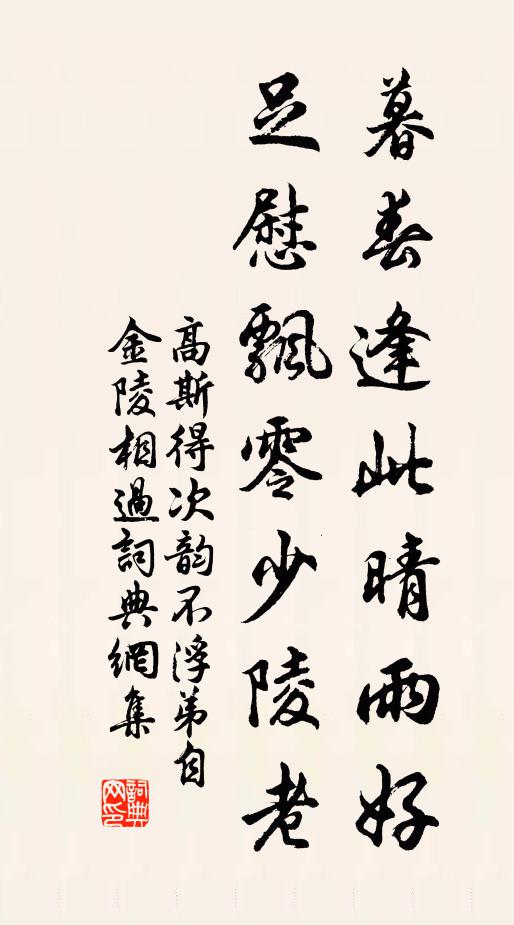 暮春逢此晴雨好
足慰飄零少陵老
高斯得次韵不浮弟自
金陵相過詞典網集
詞典网印